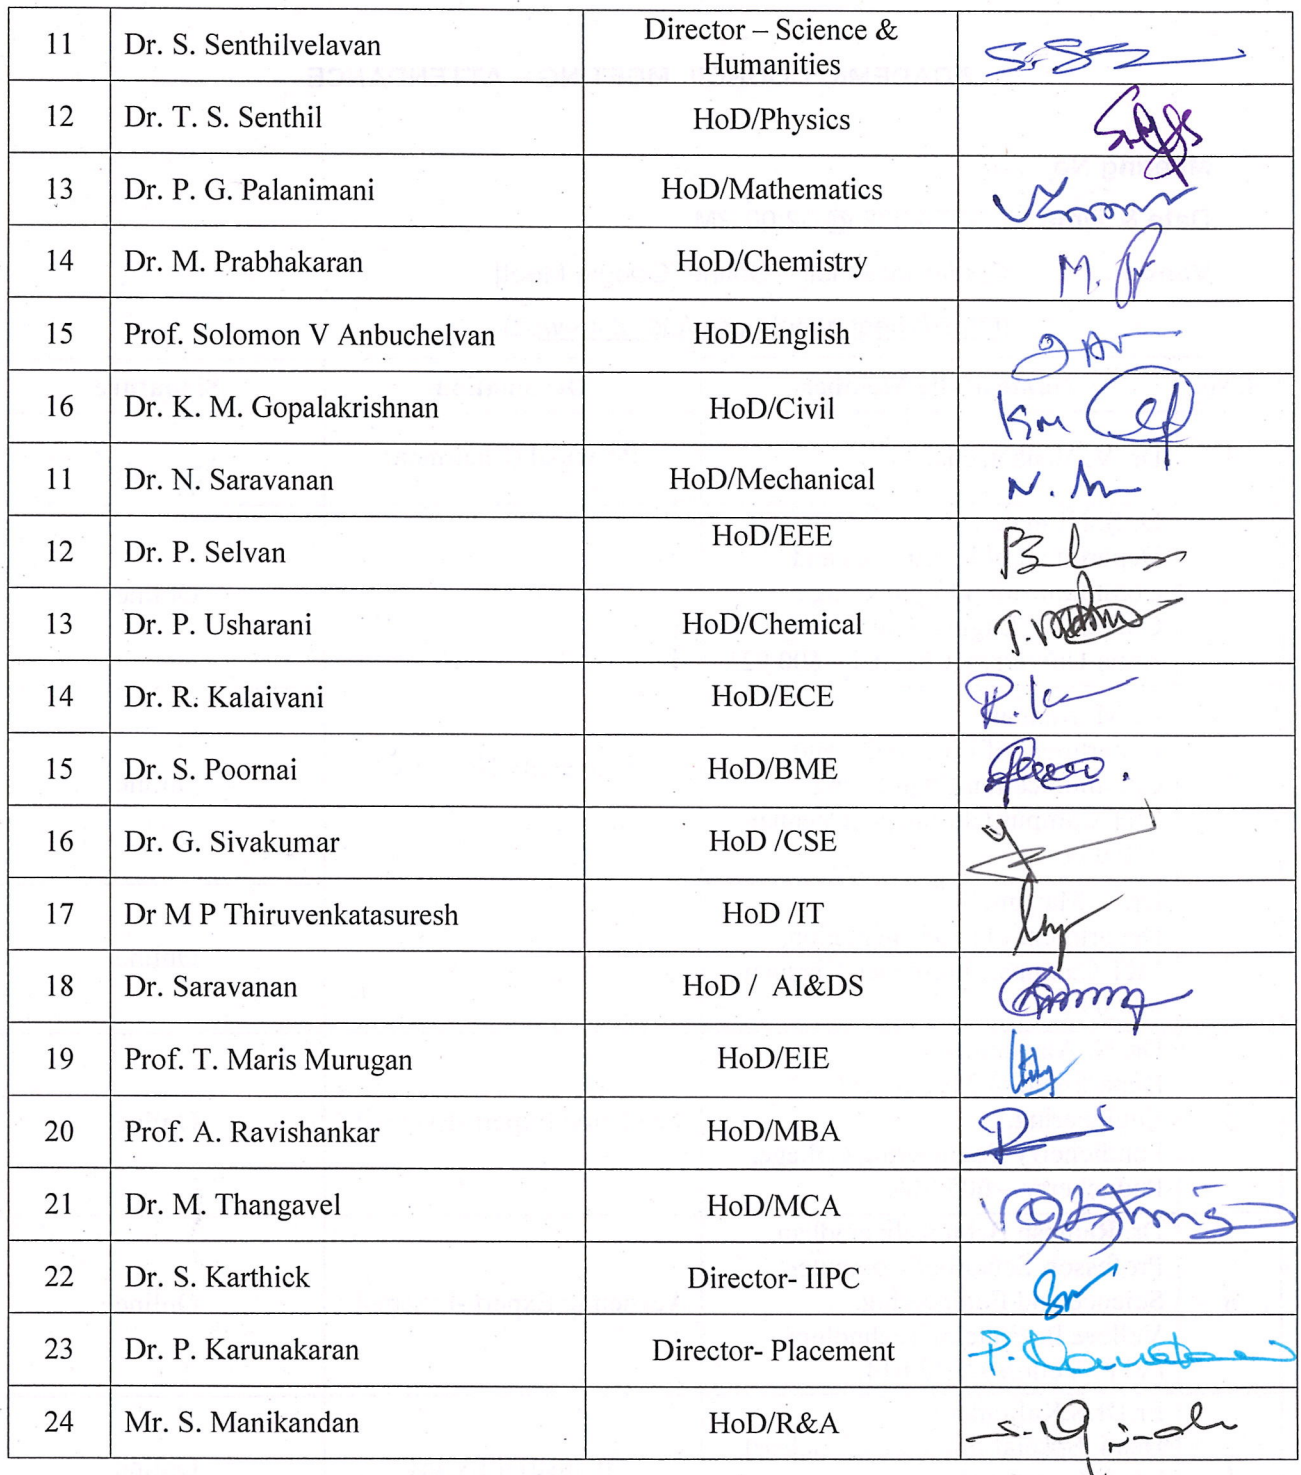 11 Dr. S. Senthilvelavan Director – Science &
Humanities
12 Dr. T. S. Senthil HoD/Physics
13 Dr. P. G. Palanimani HoD/Mathematics
14 Dr. M. Prabhakaran HoD/Chemistry M.
15 Prof. Solomon V Anbuchelvan HoD/English
16 Dr. K. M. Gopalakrishnan HoD/Civil
11 Dr. N. Saravanan HoD/Mechanical N.
12 Dr. P. Selvan HoD/EEE
13 Dr. P. Usharani HoD/Chemical
14 Dr. R. Kalaivani HoD/ECE R.
15 Dr. S. Poornai HoD/BME
16 Dr. G. Sivakumar HoD /CSE
17 Dr M P Thiruvenkatasuresh HoD /IT
18 Dr. Saravanan HoD / AI&DS
19 Prof. T. Maris Murugan HoD/EIE
20 Prof. A. Ravishankar HoD/MBA
21 Dr. M. Thangavel HoD/MCA
22 Dr. S. Karthick Director- IIPC
23 Dr. P. Karunakaran Director- Placement P.
24 Mr. S. Manikandan HoD/R&A